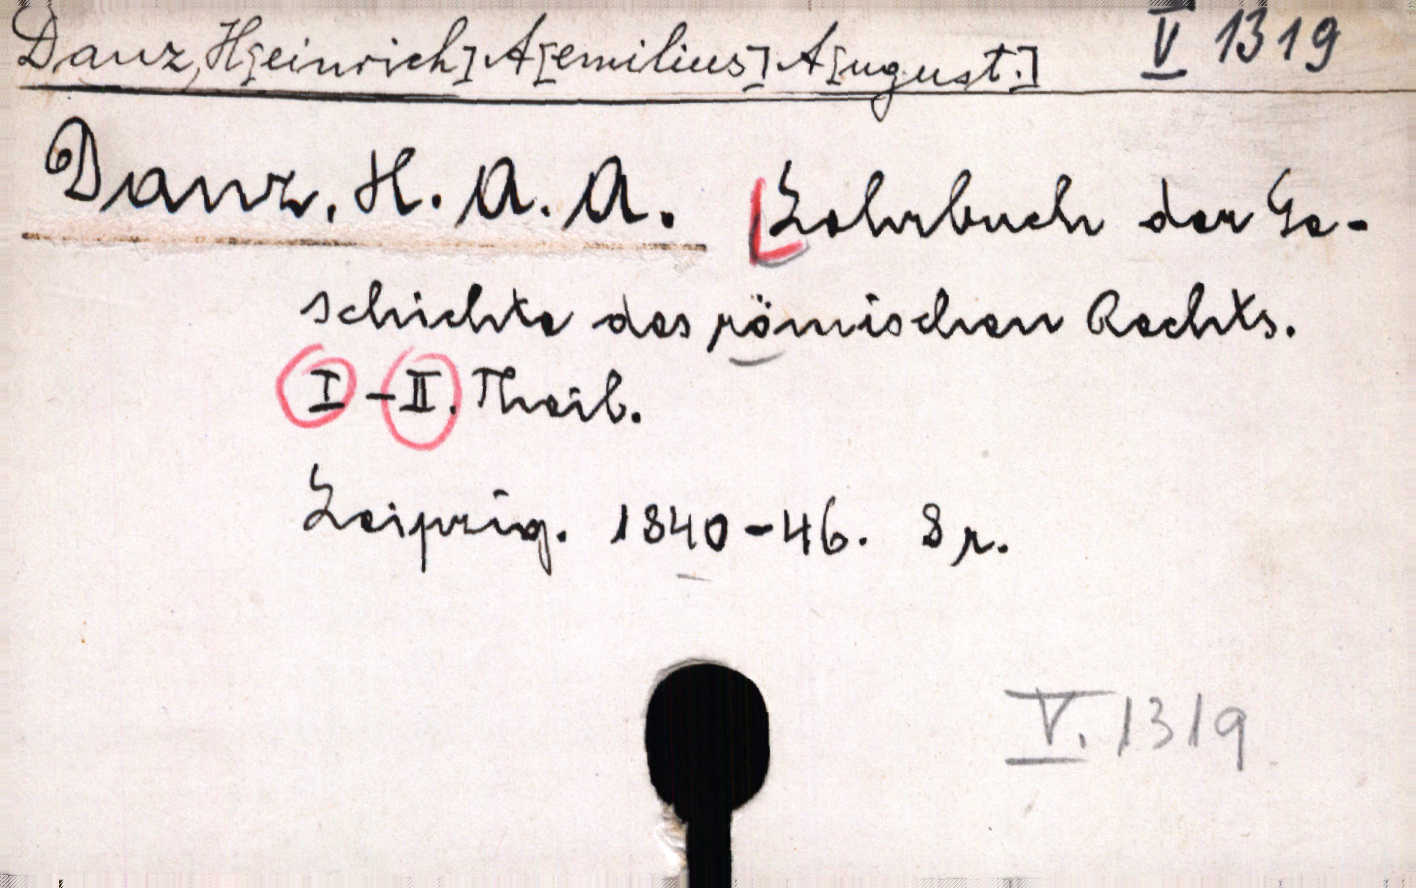 Danz, H[einrich] A[emilius] A[ugust.] V 1319
Danz, H. A. A. Lehrbuch der Ge-
schichte des römischen Rechts.
I - II. Theil.
Leipzig. 1840-46. 8 r.
V. 1319